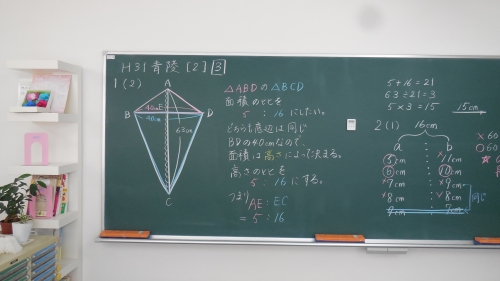 H31 青陵 [2] 3
1(2)
A
40cm E
B
D
40cm
63cm
C
△ABDの△BCD
面積のヒヒを
5 : 16にしたい。
どちらも底辺は同じ
BDの40cmなので、
面積は高さによって決まる。
高さのヒヒを
5 : 16にする。
つまり AE:EC
= 5 : 16
5+16=21
63÷21=3
5×3=15
15cm
2(1) 16cm
a : b
⑤cm : 11cm
⑥cm : ⑩cm
×7cm : ×9cm
×8cm : ×8cm
9cm : 7cm
同じ
×60
○60